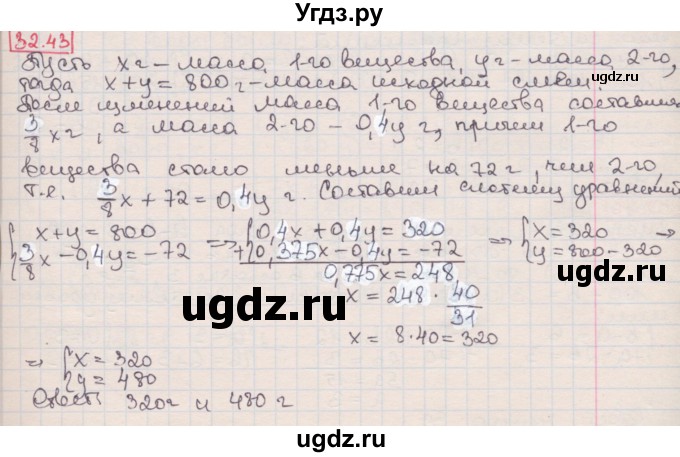 Угдз.ру
32.43
Пусть x г – масса 1-го вещества, y г – масса 2-го,
тогда x+y = 800 г – масса исходной смеси.
После изменений масса 1-го вещества составила
3/8 x г, а масса 2-го – 0,4y г, причем 1-го
вещества стало меньше на 72 г, чем 2-го,
т.е. 3/8 x + 72 = 0,4y г. Составим систему уравнений
{ x+y = 800 => { 0,4x + 0,4y = 320 => { x = 320 =>
{ 3/8 x – 0,4y = –72 + { 0,375x – 0,4y = –72 { y = 800 – 320
0,775x = 248
x = 248 · 40/31
x = 8·40 = 320
=> { x = 320
{ y = 480
Ответ: 320г и 480 г
uhgdz.ru
uhgdz.ru
uhgdz.ru
uhgdz.ru
uhgdz.ru
uhgdz.ru